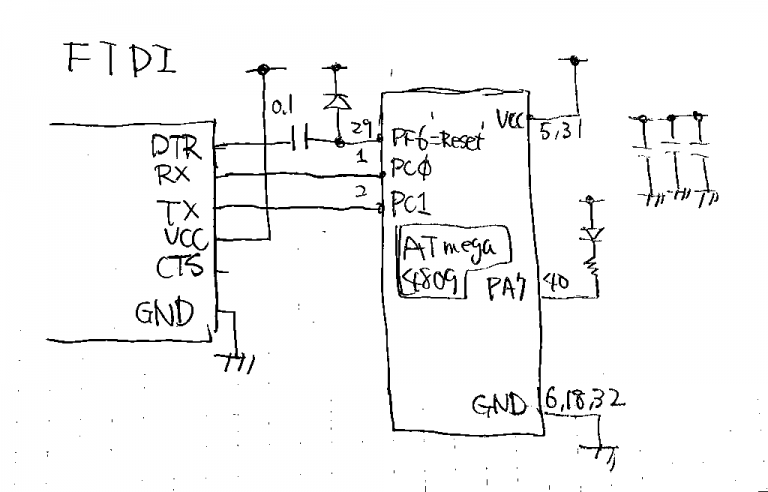 FTDI
0.1
DTR
RX
TX
VCC
CTS
GND
29
1
2
PF6'=Reset'
PC0
PC1
ATmega
4809
Vcc
5,31
PA7
40
GND
6,18,32